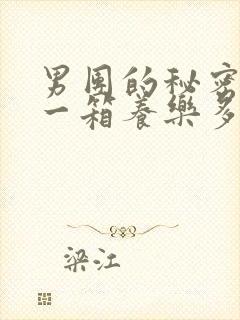 男团的秘密
一箱養樂多
梁江